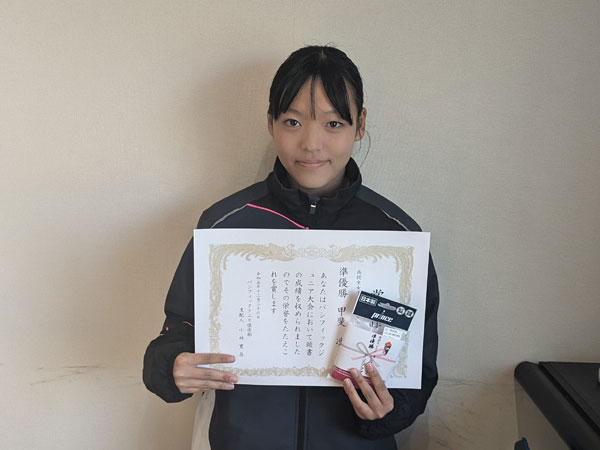 準優勝 甲斐
あなたはパシフィックジ
ュニア大会において頭書
の成績を収められました
のでその栄誉をたたえこ
れを賞します
パシフィックテニス倶楽部
支配人 小林
日本製
prince
準優勝